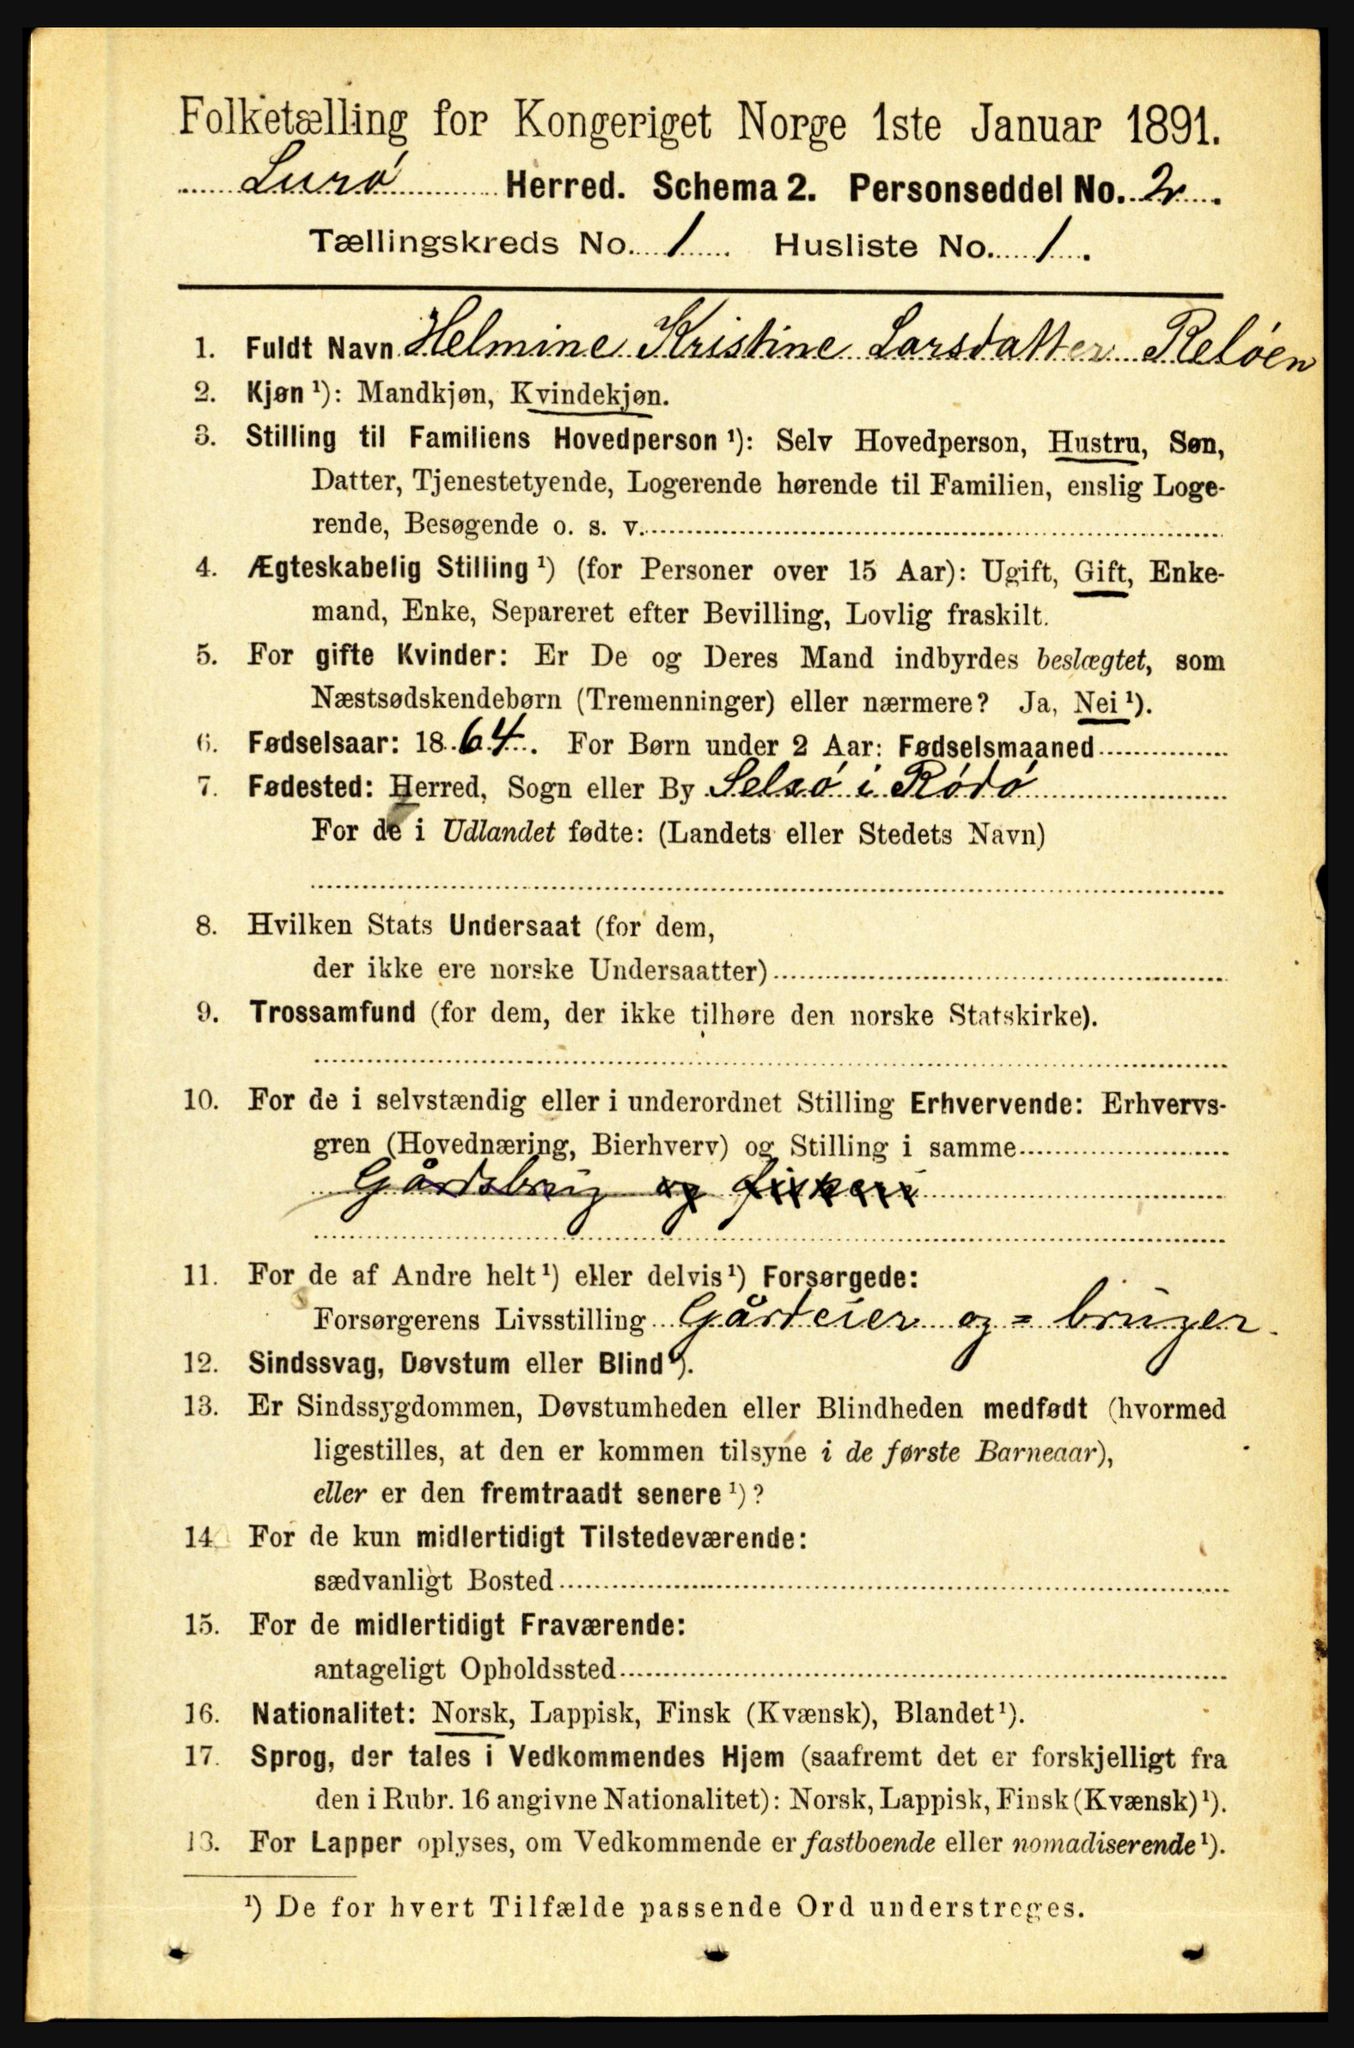 Folketælling for Kongeriget Norge 1ste Januar 1891.
Lurø Herred. Schema 2. Personseddel No. 2.
Tællingskreds No. 1. Husliste No. 1.
1. Fuldt Navn Helmine Kristine Larsdatter Reløen
2. Kjøn ¹): Mandkjøn, Kvindekjøn.
3. Stilling til Familiens Hovedperson ¹): Selv Hovedperson, Hustru, Søn,
Datter, Tjenestetyende, Logerende hørende til Familien, enslig Loge-
rende, Besøgende o. s. v.
4. Ægteskabelig Stilling ¹) (for Personer over 15 Aar): Ugift, Gift, Enke-
mand, Enke, Separeret efter Bevilling, Lovlig fraskilt.
5. For gifte Kvinder: Er De og Deres Mand indbyrdes beslægtet, som
Næstsødskendebørn (Tremenninger) eller nærmere? Ja, Nei ¹).
6. Fødselsaar: 1864. For Børn under 2 Aar: Fødselsmaaned
7. Fødested: Herred, Sogn eller By Selsø i Rødø
For de i Udlandet fødte: (Landets eller Stedets Navn)
8. Hvilken Stats Undersaat (for dem,
der ikke ere norske Undersaatter)
9. Trossamfund (for dem, der ikke tilhøre den norske Statskirke).
10. For de i selvstændig eller i underordnet Stilling Erhvervende: Erhvervs-
gren (Hovednæring, Bierhverv) og Stilling i samme
Gårdsbrug og fiskeri
11. For de af Andre helt ¹) eller delvis ¹) Forsørgede:
Forsørgerens Livsstilling Gårdeier og = bruger.
12. Sindssvag, Døvstum eller Blind ¹).
13. Er Sindssygdommen, Døvstumheden eller Blindheden medfødt (hvormed
ligestilles, at den er kommen tilsyne i de første Barneaar),
eller er den fremtraadt senere ¹)?
14. For de kun midlertidigt Tilstedeværende:
sædvanligt Bosted
15. For de midlertidigt Fraværende:
antageligt Opholdssted
16. Nationalitet: Norsk, Lappisk, Finsk (Kvænsk), Blandet ¹).
17. Sprog, der tales i Vedkommendes Hjem (saafremt det er forskjelligt fra
den i Rubr. 16 angivne Nationalitet): Norsk, Lappisk, Finsk (Kvænsk) ¹).
13. For Lapper oplyses, om Vedkommende er fastboende eller nomadiserende ¹).
¹) De for hvert Tilfælde passende Ord understreges.